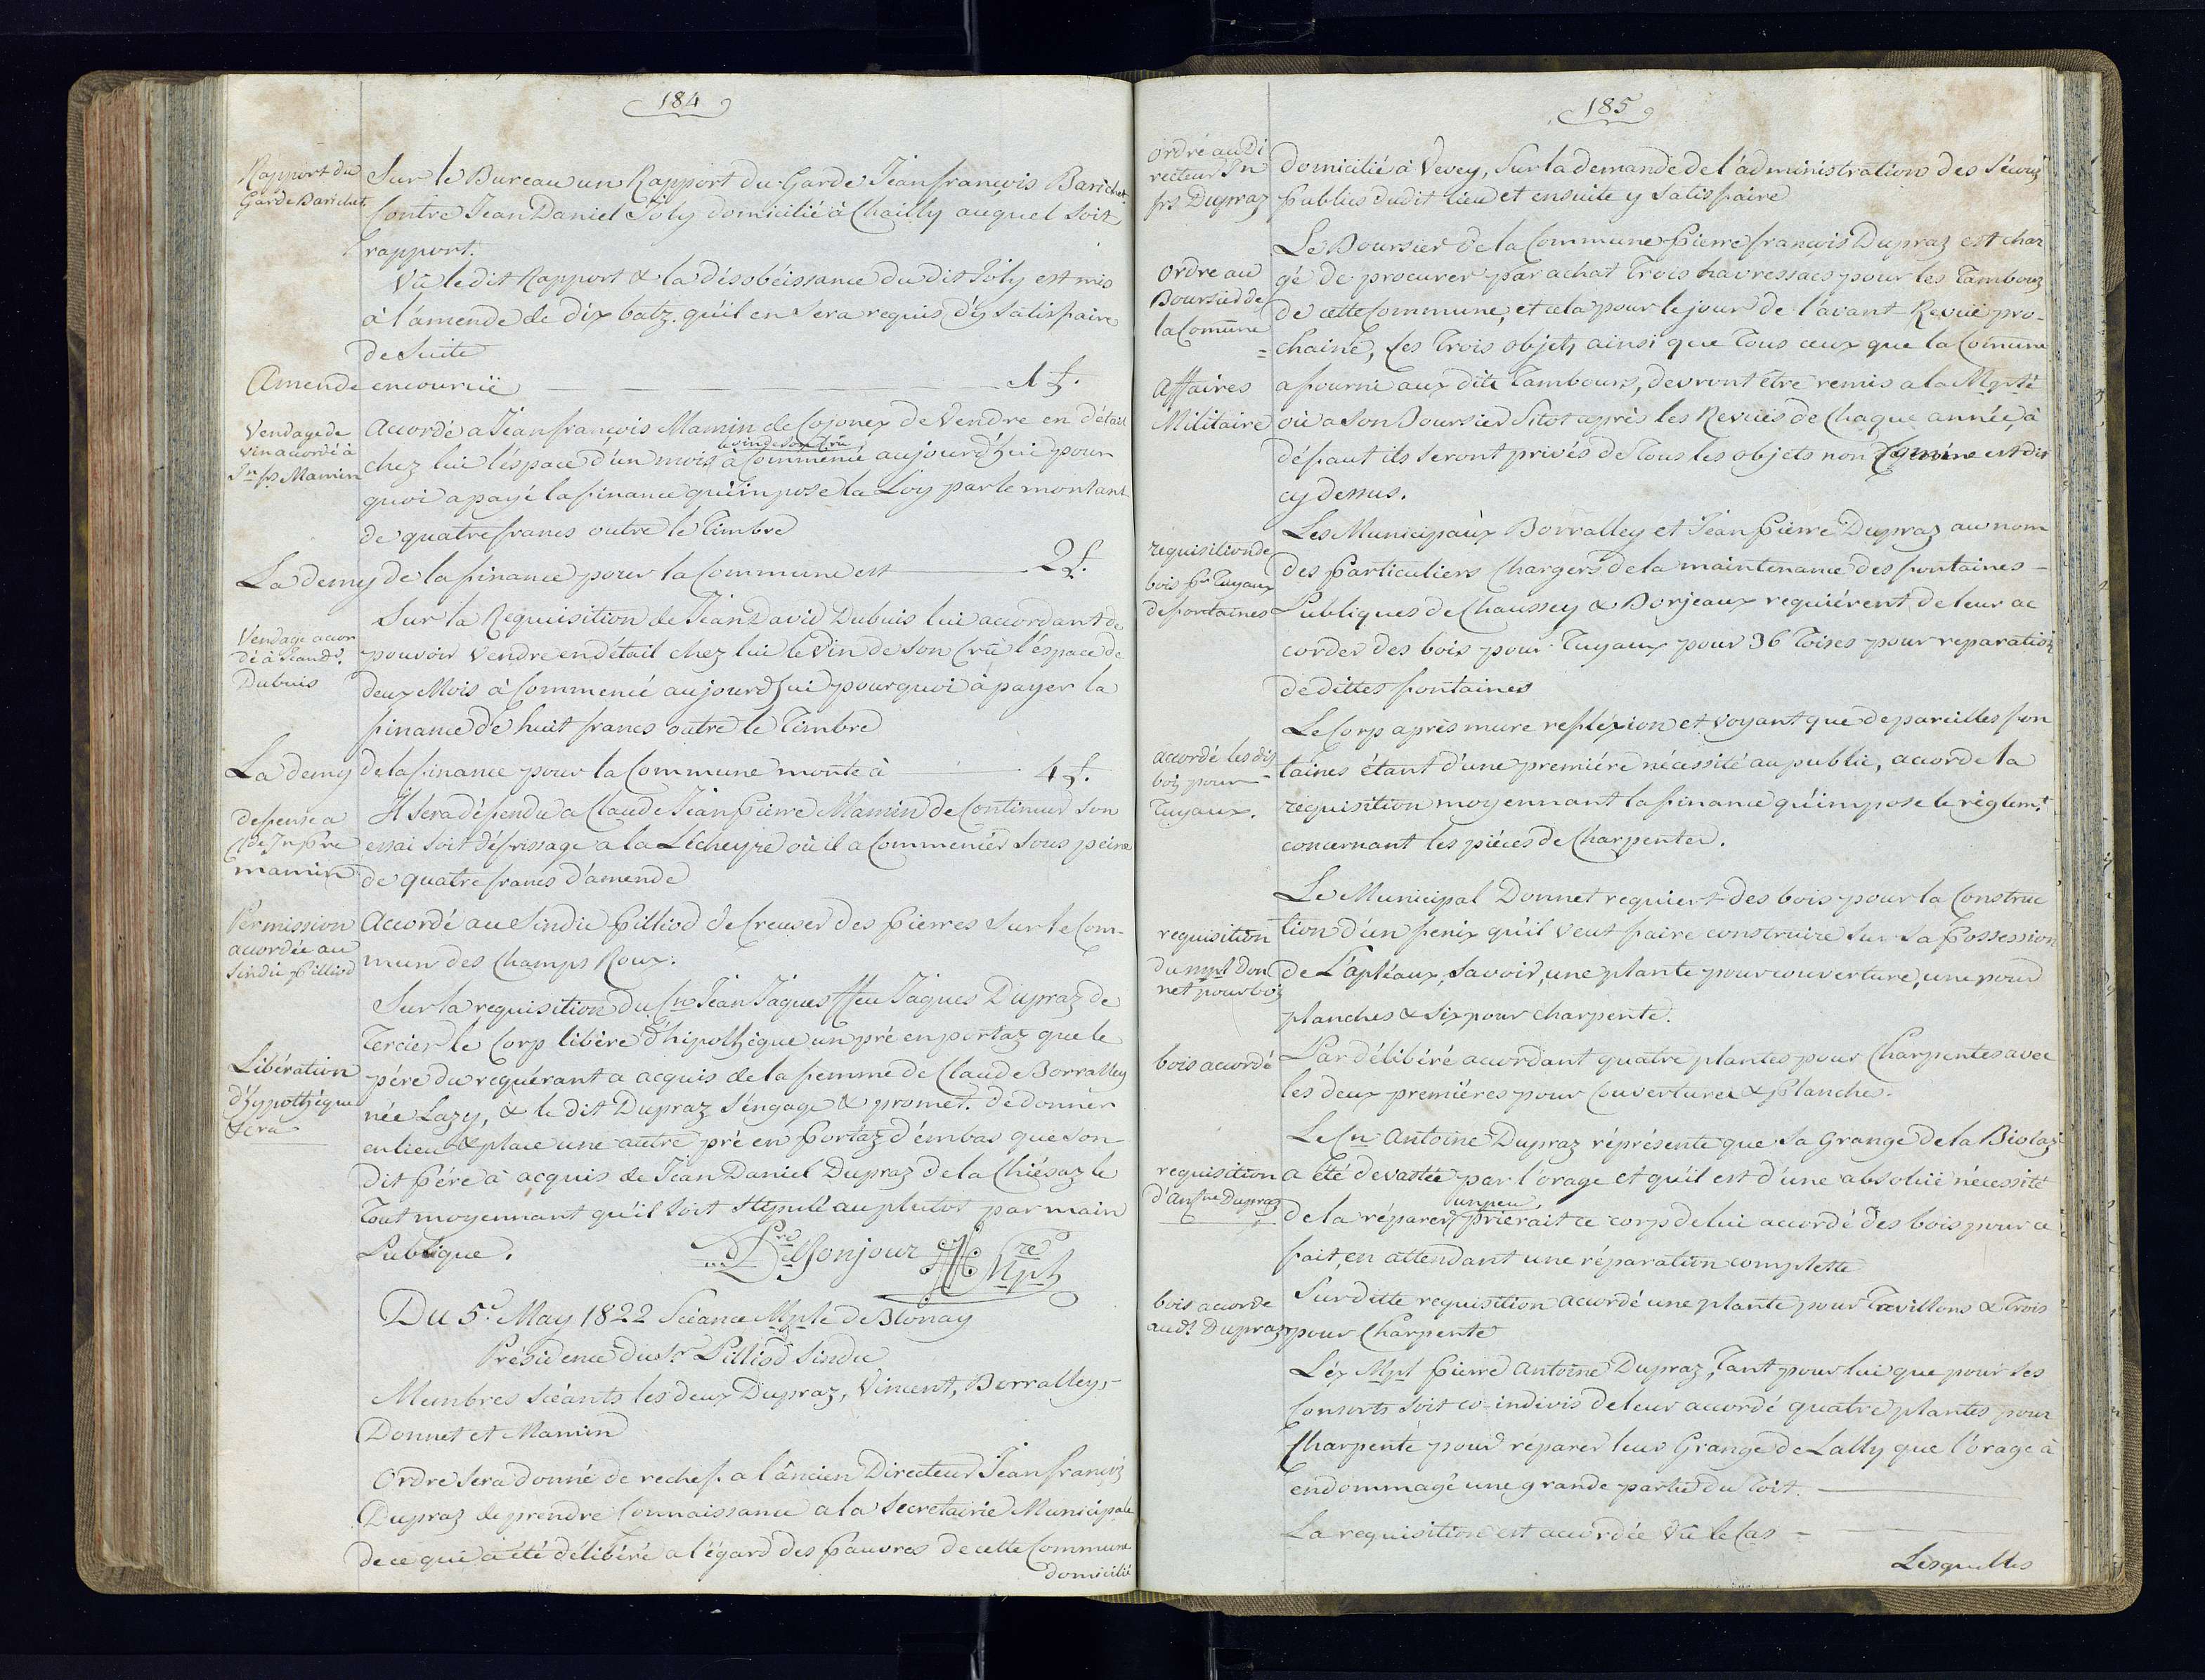 184
Rapport du
Garde Barichet
Sur le Bureau un Rapport du Garde Jean françois Barichet
Contre Jean Daniel Joly domicilié à Chailly auquel soit
rapport.
Vû le dit Rapport & la désobéissance du dit Joly est mis
à l'amende de dix batz. qu'il en sera requis d'y satisfaire
de suite
Amende encourruë 1 f.
Vendage de
vin accordé à
Jn frs Mamin
Accordé a Jean françois Mamin de Cojonex de Vendre en détail
le vin de son Crû
chez lui l'éspace d'un mois à Commencé aujourd'hui pour
quoi a payé la finance qu'impose la Loy par le montant
de quatre francs outre le Timbre
La demy de la finance pour la Commune est 2 f.
Vendage accor
dé à Jean Dd.
Dubuis
Sur la Requisition de Jean David Dubuis lui accordant de
pouvoir Vendre en détail chez lui le Vin de son Crû l'éspace de
deux Mois à Commencé aujourd'hui pourquoi à payer la
finance de huit francs outre le Timbre
La demy de la finance pour la Commune monte à 4 f.
defense a
Cde Jn Pre
mamin
Il sera défendu a Claude Jean Pierre Mamin de Continuer son
essai soit défrissage a la Lécheyre où il a Commencér sous peine
de quatre francs d'amende
Permission
accordée au
Sindic Pilliod
Accordé au Sindic Pilliod de Creuser des Pierres sur le Com-
mun des Champs Roux.
Libération
d'hÿppothéque
Sera
Sur la requisition du Cn Jean Jaques ffeu Jaques Dupraz de
Tercier le Corp libère d'hipothéque un pré en portaz que le
pére du requérant a acquis de la femme de Claude Borralley
née Lazy, & le dit Dupraz s'éngage & promet. de donner
en lieu & place une autre pré en Portaz d'émbas que son
dit Pére à acquis de Jean Daniel Dupraz de la Chiésaz le
Tout moyennant qu'il soit stipulé au plutot par main
Publique.
Bonjour
Du 5e. May 1822 Séance Mple de Blonay
Présidence du Sr Pilliod Sindic
Membres Séants les deux Dupraz, Vincent, Borralley,
Donnet et Mamin
Ordre sera donné de rechef a l'ancien Directeur Jean françois
Dupraz de prendre Connaissance a la Secretairie Municipale
de ce qui a été délibéré a l'égard des Pauvres de cette Commune
domicilié
185
Ordre au Di
recteur Jn
frs Dupraz
domicilié à Vevey, sur la demande de l'administration des Sécours
Publics dudit lieu et ensuite y satisfaire
Ordre au
Boursier de
la Comune
Le Boursier de la Commune Pierre françois Dupraz est char
gé de procurer par achat Trois havressacs pour les Tambours
de cette Commune, et cela pour le jour de l'avant-Revuë pro-
chaine, les Trois objets ainsi que Tous ceux que la Comune
Affaires
Militaire
a fourni aux dits Tambours, devront être remis a la Mpté
où a son Boursier Sitot après les Revues de Chaque année, à
défaut ils seront privés de Tous les objets non est dit
cy dessus.
requisition de
bois pr Tuyaux
de fontaines
Les Municipaux Borralley et Jean Pierre Dupraz au nom
des Particuliers Chargers de la maintenance des fontaines
Publiques de Chaussey & Borjeaux requiérent de leur ac
corder des bois pour Tuyaux pour 36 Toises pour reparation
de dittes fontaines
accordé les dis
bois pour
Tuyaux.
Le Corp après mure refléxion et voyant que de pareilles fon
taines étant d'une premiére nécessité au public, acorde la
réquisition moyennant la finance qu'impose le réglemt.
concernant les piéces de Charpenter.
requisition
du mpl Don
net pour bois
Le Municipal Donnet requiert des bois pour la Construc
tion d'un fenix qu'il veut faire construire sur sa Possession
de L'apléaux, savoir, une plante pour couverture, une pour
planches & six pour charpente.
bois accordé
Par délibéré accordant quatre plantes pour Charpentes avec
les deux premiéres pour Couverture & Planche.
requisition
d'Antne Dupraz
Le Cn Antoine Dupraz réprésente que sa Grange de la Biolaz
a été devastée par l'orage et qu'il est d'une absoluë nécessité
un peu,
de la réparer prierait ce corp de lui accordé des bois pour ce
fait, en attendant une réparation complette
bois accorde
audt Dupraz
Sur ditte requisition accordé une plante pour Tavillons & Trois
pour Charpente
L'éx Mpl Pierre Antoine Dupraz, Tant pour lui que pour ses
Consorts soit co-indivis de leur accordé quatre plantes pour
Charpente pour réparer leur Grange de Lally que l'orage à
endommagé une grande partie du Toit.
La requisition est accordée Vû le Cas
Lesquelles